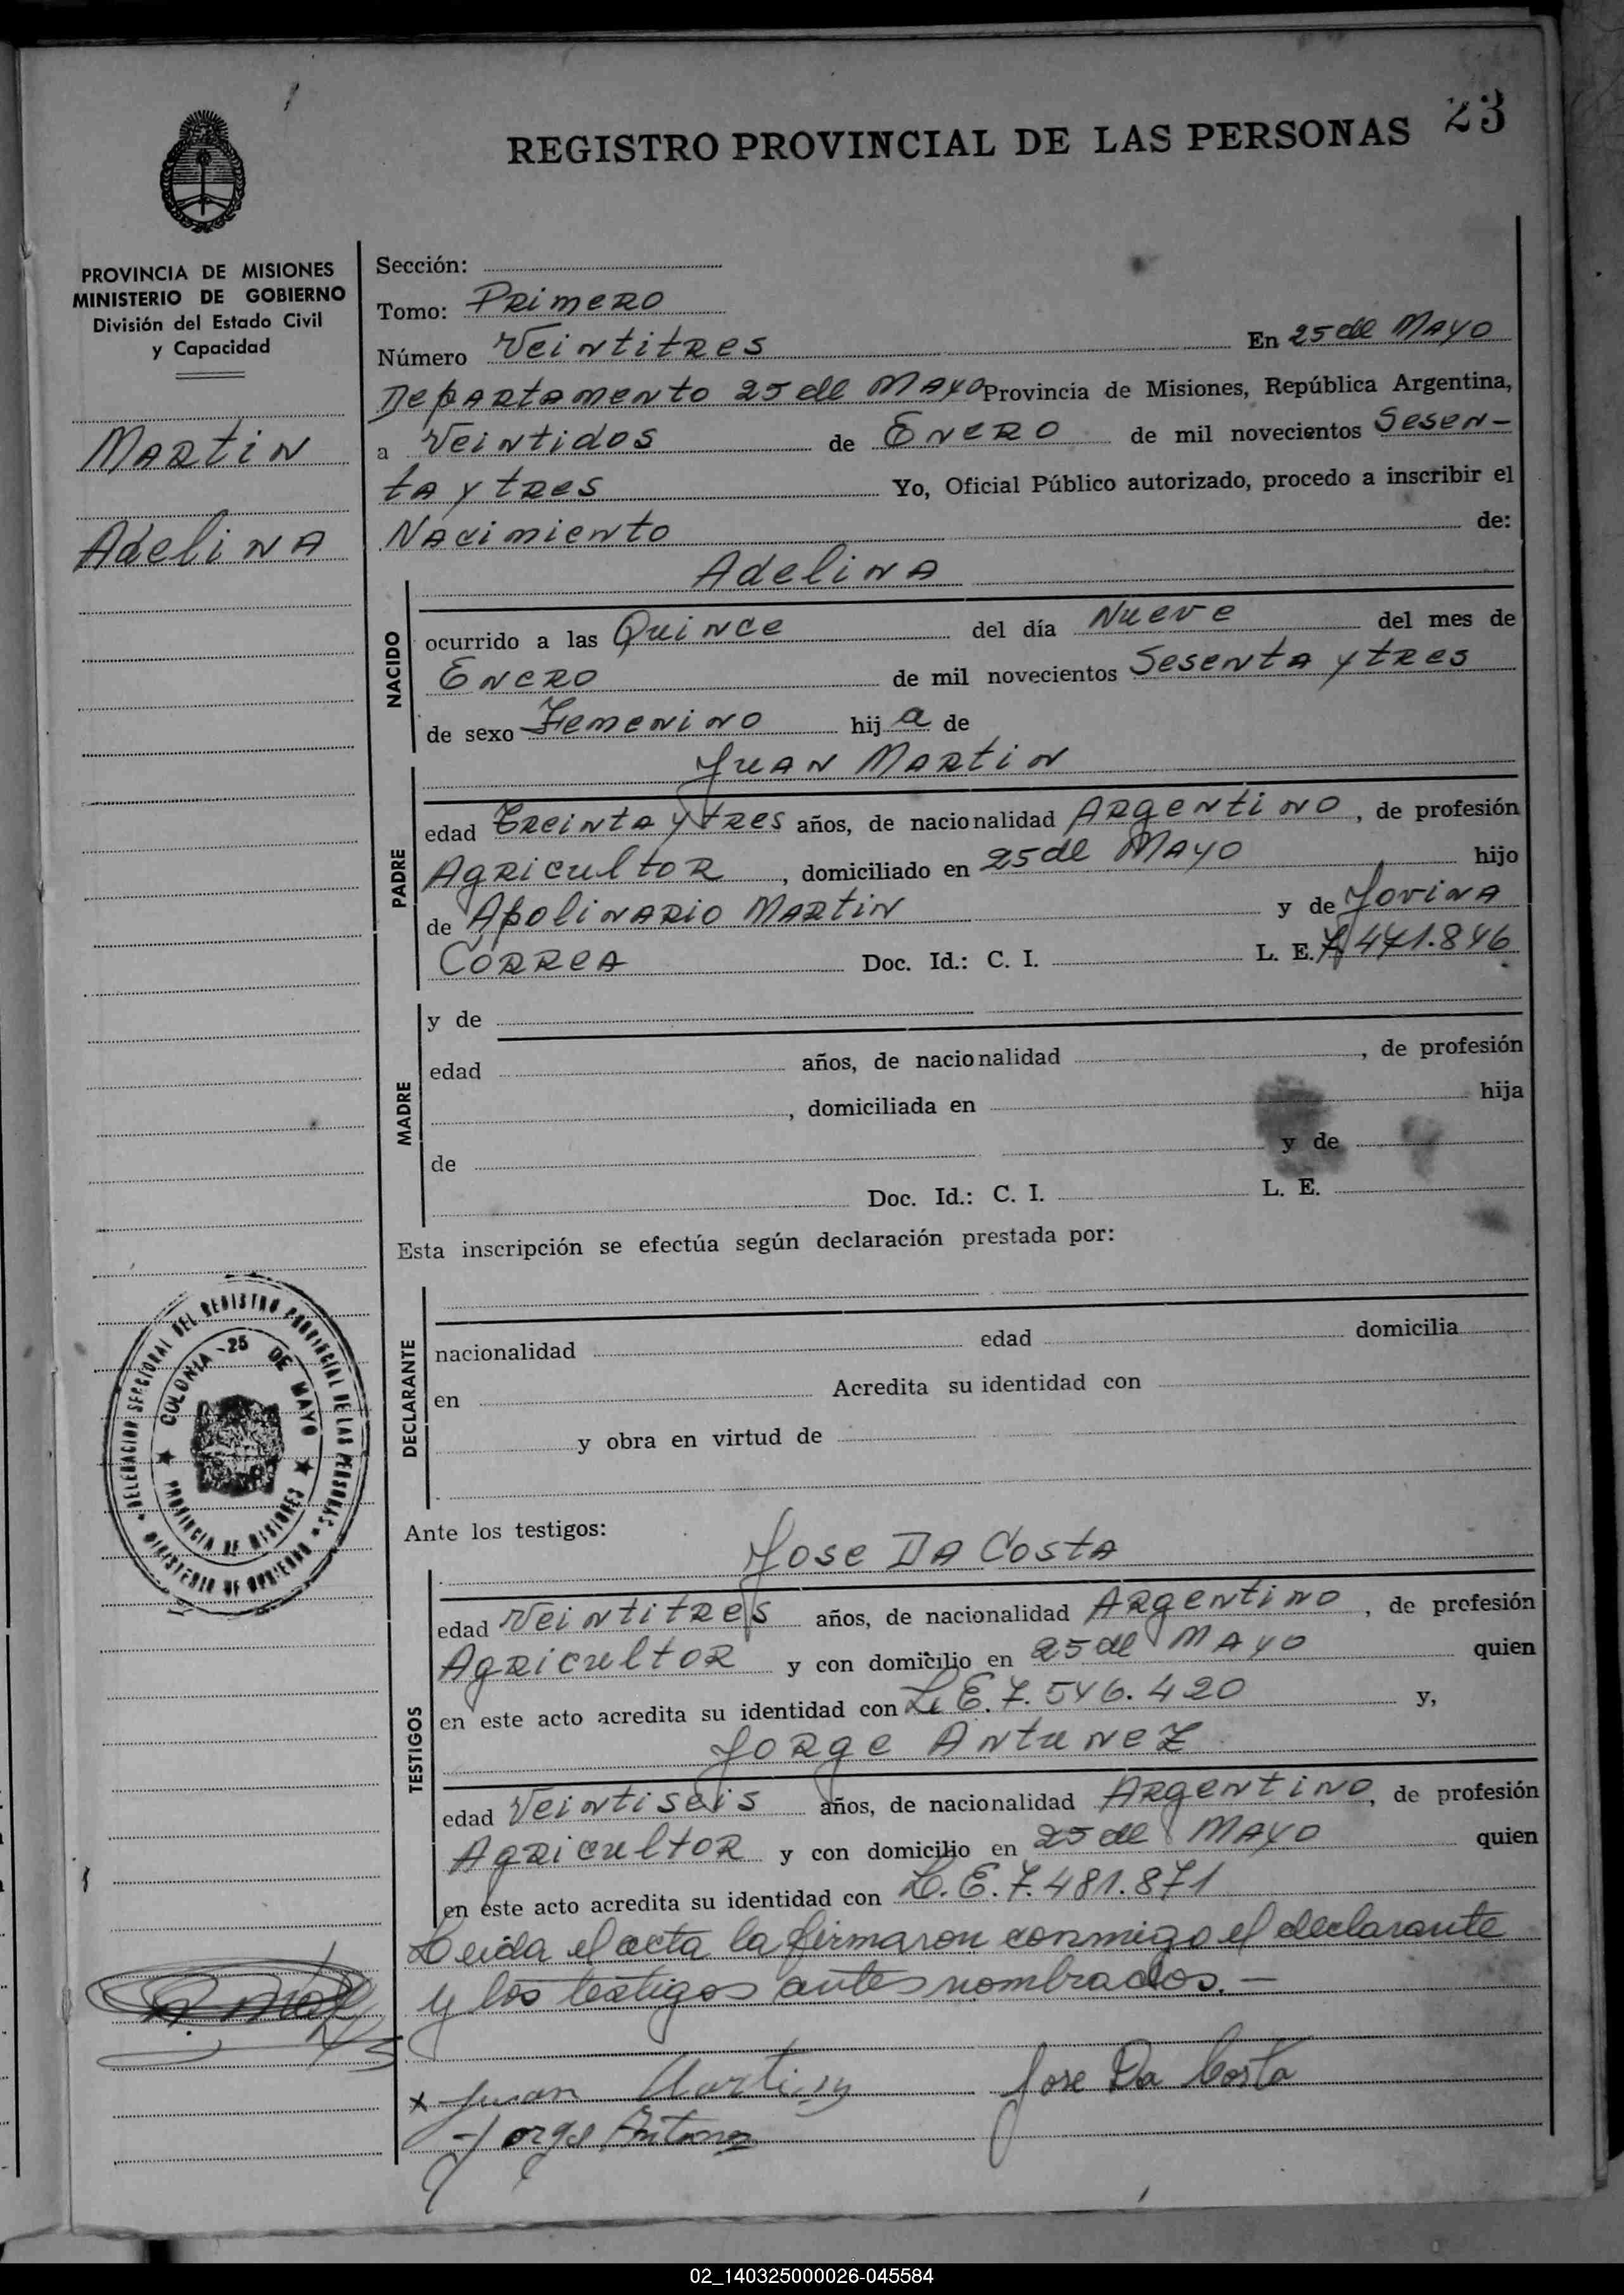 23
REGISTRO PROVINCIAL DE LAS PERSONAS
PROVINCIA DE MISIONES
MINISTERIO DE GOBIERNO
División del Estado Civil
y Capacidad
Martin
Adelina
Sección:
Tomo: Primero
Número Veintitres En 25 de Mayo
Departamento 25 de Mayo Provincia de Misiones, República Argentina,
a Veintidos de Enero de mil novecientos Sesen-
ta y tres Yo, Oficial Público autorizado, procedo a inscribir el
Nacimiento de:
Adelina
NACIDO
ocurrido a las Quince del día Nueve del mes de
Enero de mil novecientos Sesenta y tres
de sexo Femenino hij a de
Juan Martin
PADRE
edad Treinta y tres años, de nacionalidad Argentino, de profesión
Agricultor, domiciliado en 25 de Mayo hijo
de Apolinario Martin y de Jovina
Correa Doc. Id.: C. I. L. E. 7.471.846
MADRE
y de
edad años, de nacionalidad , de profesión
, domiciliada en hija
de y de
Doc. Id.: C. I. L. E.
Esta inscripción se efectúa según declaración prestada por:
DECLARANTE
nacionalidad edad domicilia
en Acredita su identidad con
y obra en virtud de
DELEGACION SECCIONAL DEL REGISTRO PROVINCIAL DE LAS PERSONAS
MINISTERIO DE GOBIERNO
COLONIA 25 DE MAYO
PROVINCIA DE MISIONES
Ante los testigos:
Jose Da Costa
TESTIGOS
edad Veintitres años, de nacionalidad Argentino, de profesión
Agricultor y con domicilio en 25 de Mayo quien
en este acto acredita su identidad con L. E. 7.546.420 y,
Jorge Antunez
edad Veintiseis años, de nacionalidad Argentino, de profesión
Agricultor y con domicilio en 25 de Mayo quien
en este acto acredita su identidad con L. E. 7.481.871
Leida el acta la firmaron conmigo el declarante
y los testigos antes nombrados. —
x Juan Martin Jose Da Costa
Jorge Antunez
02_140325000026-045584